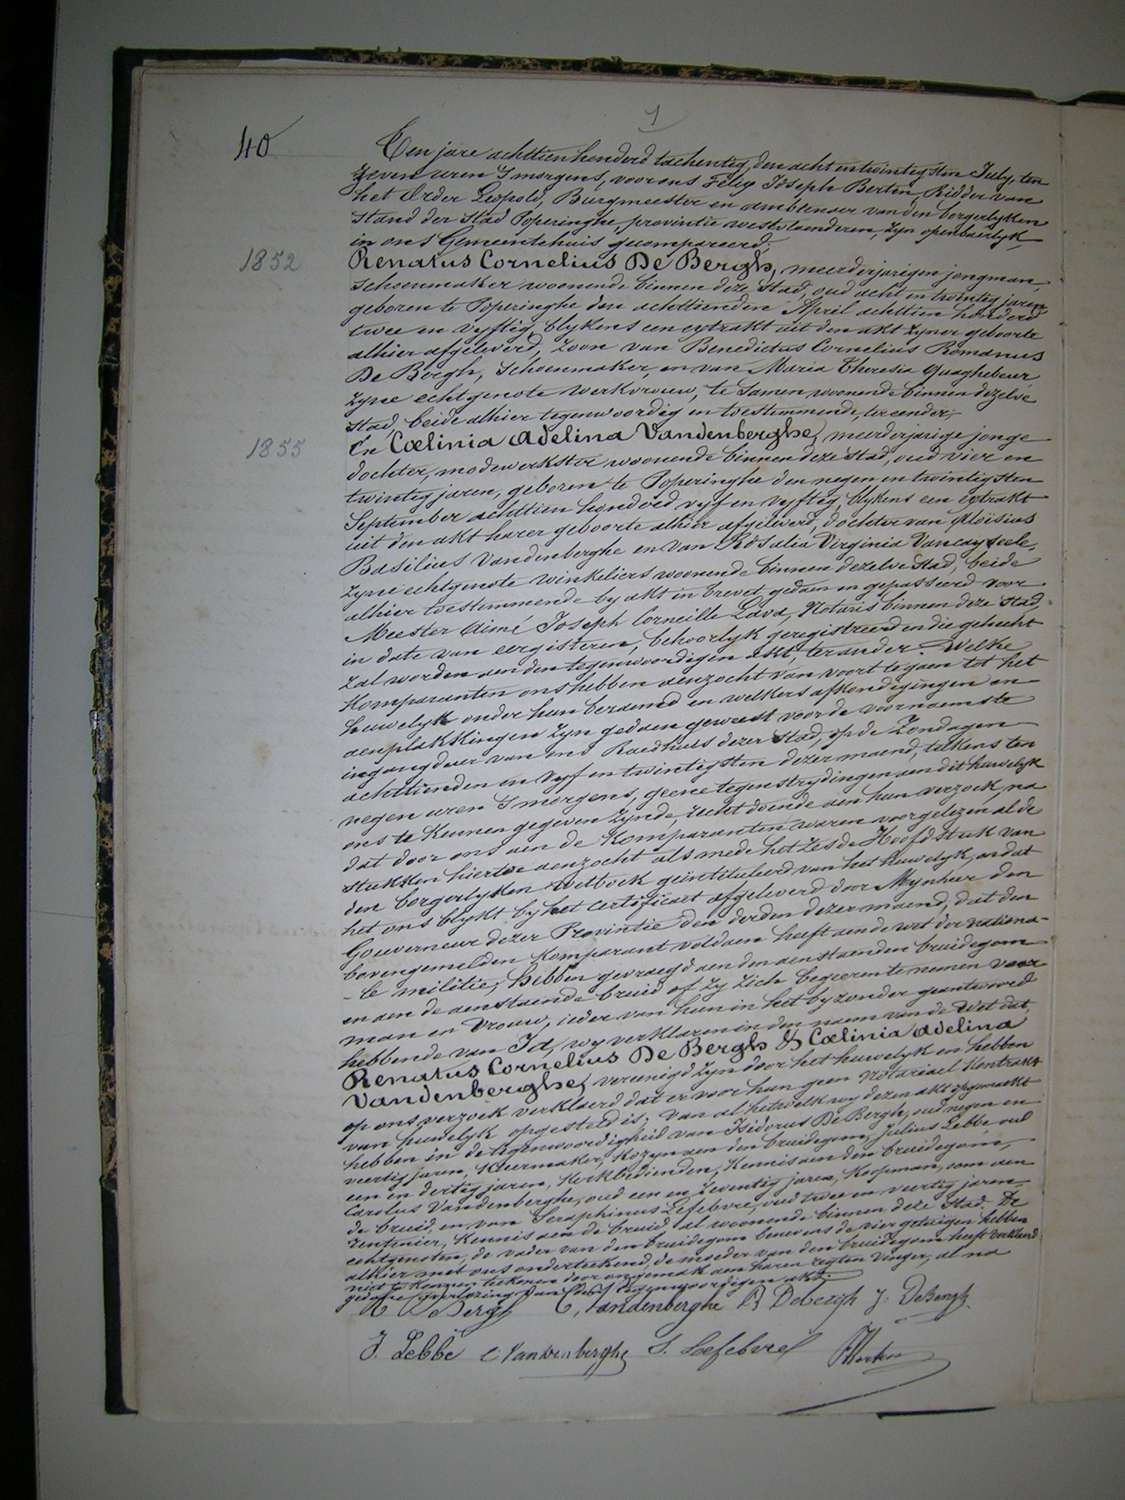 1
40
Ten jare achttien honderd tachentig, den acht en twintigsten July, ten
zeven uren 's morgens, voor ons Felix Joseph Berten, Ridder van
het Order Leopold, Burgmeester en ambtenaer van den borgerlyken
stand der stad Poperinghe, provintie westvlaenderen, zyn openbaerlyk
in ons Gemeentehuis gecompareerd,
1852
Renatus Cornelius De Bergh, meerderjarigen jongman,
schoenmaker woonende binnen deze stad, oud acht en twintig jaren,
geboren te Poperinghe den achttienden April achttien honderd
twee en vyftig, blykens een extrakt uit den akt zyner geboorte
alhier afgeleverd, zoon van Benedictus Cornelius Romanus
De Bergh, schoenmaker, en van Maria Theresia Quaghebeur
zyne echtgenote werkvrouw, te samen woonende binnen dezelve
stad, beide alhier tegenwoordig en toestemmende, ter eender;
1855
En Cœlinia Adelina Vandenberghe, meerderjarige jonge
dochter, modewerkster woonende binnen deze stad, oud vier en
twintig jaren, geboren te Poperinghe den negen en twintigsten
September achttien honderd vyf en vyftig, blykens een extrakt
uit den akt harer geboorte alhier afgeleverd, dochter van Aloïsius
Basilius Vandenberghe en van Rosalia Virginia Vancayseele,
zyne echtgenote winkeliers woonende binnen dezelve stad, beide
alhier toestemmende by akt in brevet gedaen en gepasseerd voor
Meester Aimé Joseph Corneille Lava, Notaris binnen deze stad,
in date van eergisteren, behoorlyk geregistreerd en die gehecht
zal worden aen den tegenwoordigen akt, ter ander. Welke
komparanten ons hebben aenzocht van voort te gaen tot het
huwelyk onder hun beraemd en welkers afkondigingen en
aenplakkingen zyn gedaen geweest voor de voornaemste
ingangdeur van ons Raedhuis dezer stad, op de Zondagen
achttienden en vyf en twintigsten dezer maend, telkens ten
negen uren 's morgens, geene tegenstrydingen aen dit huwelyk
ons te kennen gegeven zynde, recht doende aen hun verzoek, na
dat door ons aen de komparanten waren voorgelezen al de
stukken hiertoe aenzocht als mede het zesde Hoofdstuk van
den borgerlyken wetboek geïntituleerd van het huwelyk, en dat
het ons blykt by het certificaet afgeleverd door Mynheer den
Gouverneur dezer Provintie den derden dezer maend, dat den
bovengemelden komparant voldaen heeft aen de wet der nationa-
-le militie, hebben gevraegd aen den aenstaenden bruidegom
en aen de aenstaende bruid of zy zich begeeren te nemen voor
man en vrouw, ieder van hun in het byzonder geantwoord
hebbende van Ja, wy verklaren in den naem van de Wet dat
Renatus Cornelius De Bergh & Cœlinia Adelina
Vandenberghe, vereenigd zyn door het huwelyk en hebben
op ons verzoek verklaerd dat er voor hun geen notariael kontrakt
van huwelyk opgesteld is; van al hetwelk wy dezen akt opgemaekt
hebben in de tegenwoordigheid van Isidorus De Bergh, oud negen en
veertig jaren, kozyn aen den bruidegom, Julius Lebbe oud
een en dertig jaren, Kerkbedienden, Kennis aen den bruidegom,
Carolus Vandenberghe, oud een en zeventig jaren, Koopman, oom aen
de bruid, en van Seraphinus Lefebvre, oud twee en veertig jaren,
rentenier, Kennis aen de bruid, al woonende binnen deze stad. De
echtgenoten, de vader van den bruidegom benevens de vier getuigen hebben
alhier met ons onderteekend, de moeder van den bruidegom heeft verklaerd
niet te konnen teekenen door ongemak aen haren regten vinger, al na
gedane voorlezing van dezen tegenwoordigen akt.
R. De Bergh C. Vandenberghe B Debergh J. DeBergh
J. Lebbe C Vandenberghe S. Lefebvre F Berten